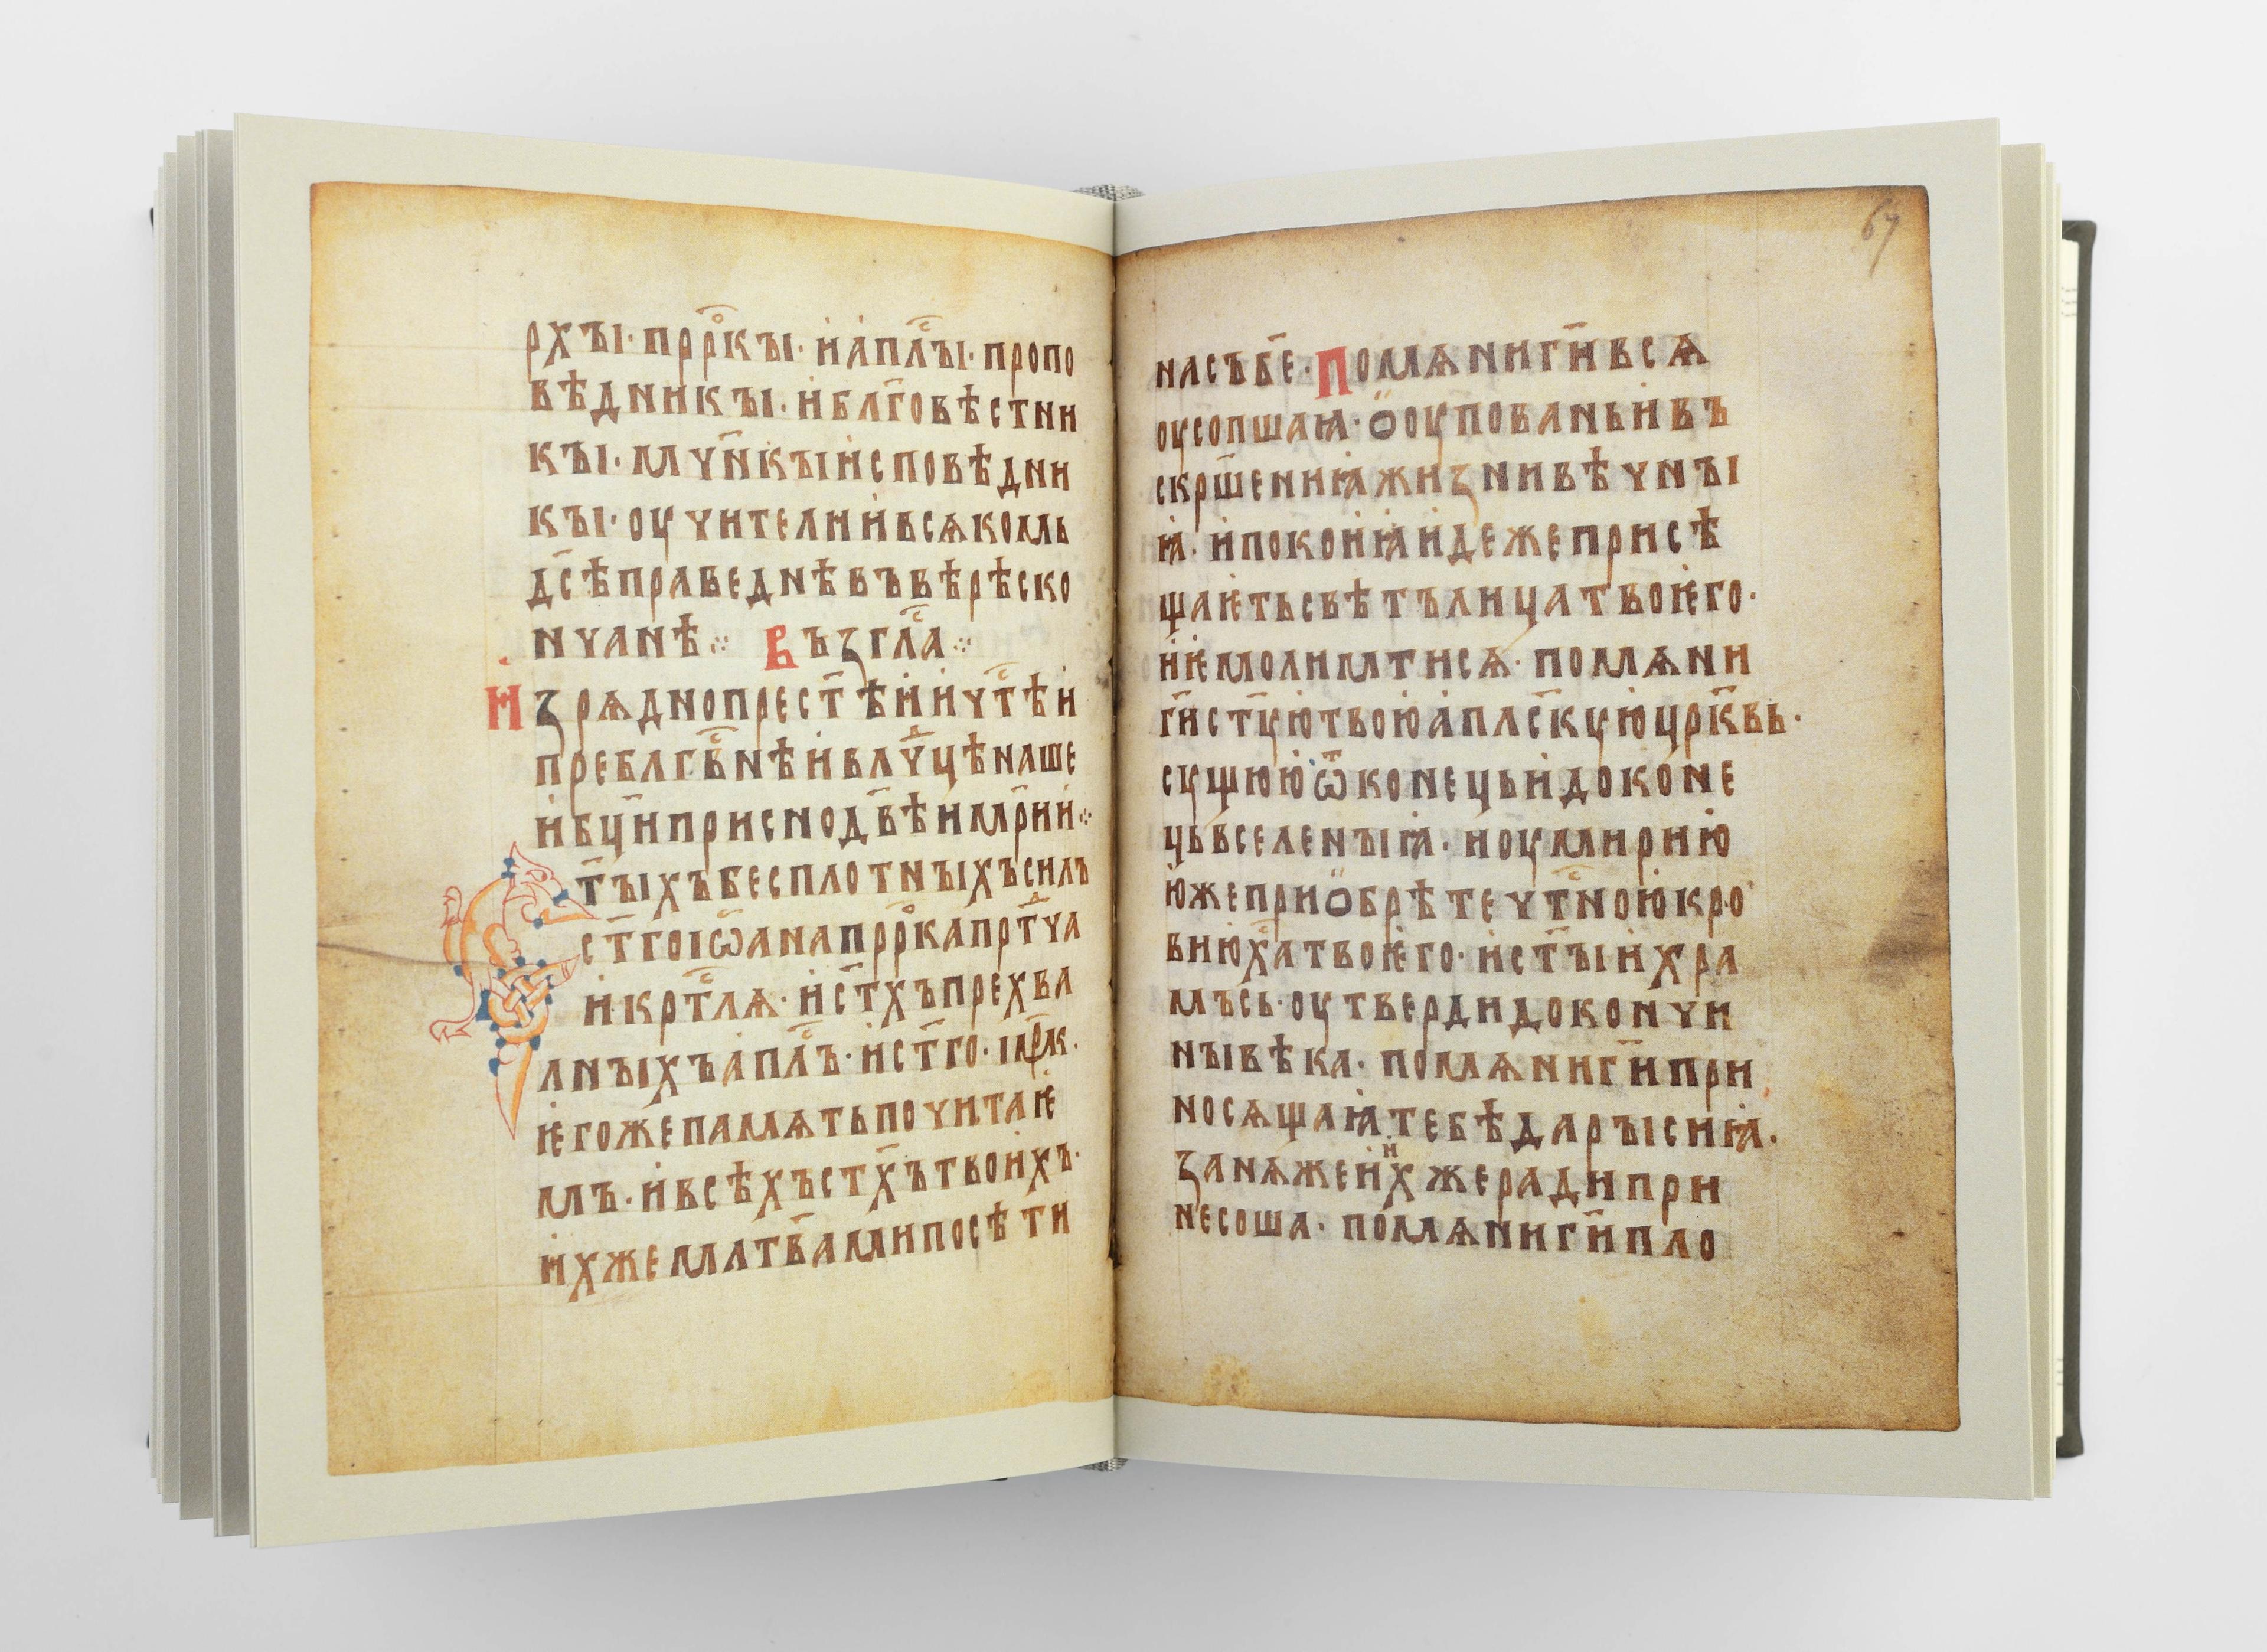 рхꙑ· пррⷪ҇кꙑ· и апⷭ҇лꙑ· пропо
вѣдникꙑ· и блг҃овѣстни
кꙑ· мчн҃кꙑ исповѣдни
кꙑ· оучители и всѧкомь
дс҃ѣ праведнѣ въ вѣрѣ ско
нчанѣ ⁘ Възглⷭ҇а ⁘
Изрѧдно прест҃ѣи и чтⷭ҇ѣи
преблгвⷭ҇нѣи влчⷣ҇цѣ наше
и бц҃и приснодв҃ѣи мр҃ии ⁘
т҃ꙑхъ бесплотнꙑхъ силъ
ст҃го іѡана пррⷪ҇ка прⷣт҃ча
и крⷭ҇тлѧ· и ст҃хъ прехва
лнꙑхъ апⷭ҇лъ· и ст҃го· імр҃к·
ѥгоже памѧть почитаѥ
мъ· и всѣхъ ст҃хъ твоихъ·
ихже млтв҃ами посѣти
67
насъ б҃е· Помѧни г҃и всѧ
оусопшаꙗ· о оупованьи въ
скрш҃ениꙗ жизни вѣчнꙑ
ꙗ· и покои ꙗ идеже присѣ
щаѥть свѣтъ лица твоѥго·
и ѥ молимтисѧ· помѧни
г҃и ст҃ую твою апⷭ҇лскую црк҃вь·
сущюю ѿ конець и до коне
ць вселенꙑꙗ· и оумирию
юже приобрѣте чтⷭ҇ною кро
вию хⷭ҇а твоѥго· и ст҃ꙑи хра
мъ сь· оутверди до кончи
нꙑ вѣка· помѧни г҃и при
носѧщаꙗ тебѣ дарꙑ сиꙗ·
за нѧже и ихже ради при
несоша· помѧни г҃и пло